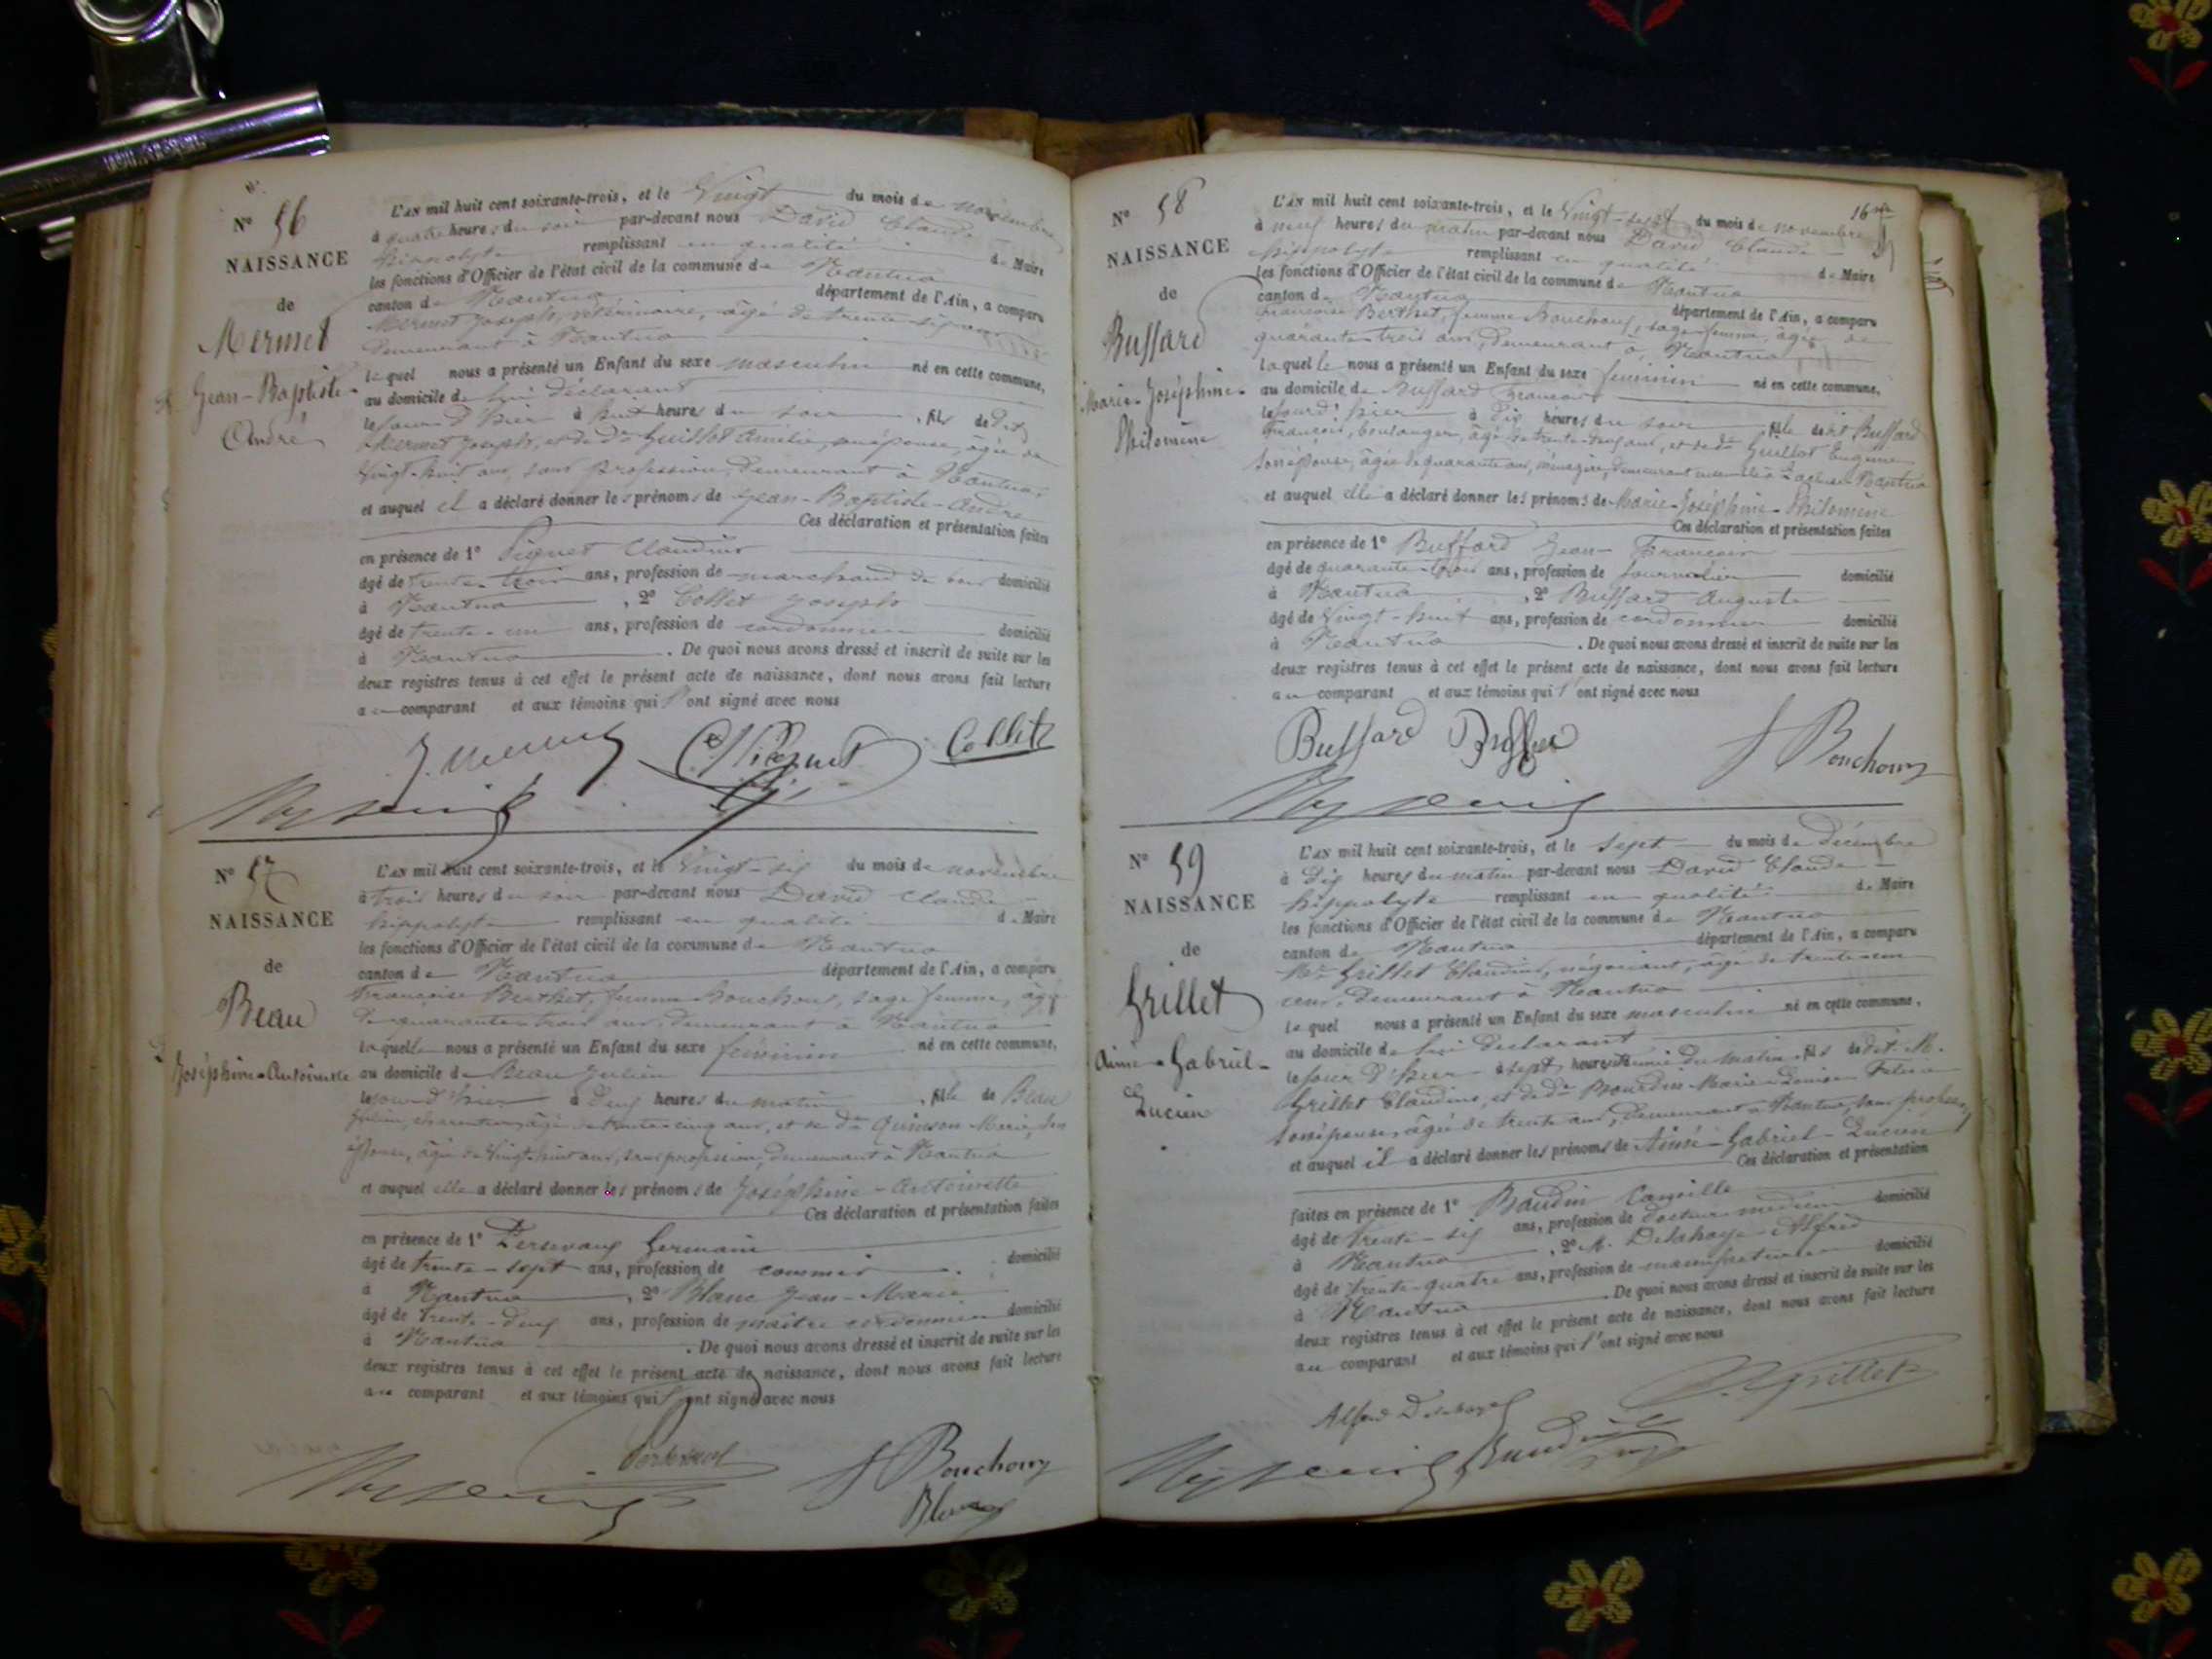 Nº 56
NAISSANCE
de
Mermet
Jean-Baptiste-
André
L'AN mil huit cent soixante-trois, et le Vingt du mois de novembre
à quatre heures du soir par-devant nous David Claude
hippolyte remplissant en qualité de Maire
les fonctions d'Officier de l'état civil de la commune de Nantua
canton de Nantua département de l'Ain, a comparu
Mermet Joseph, vétérinaire, âgé de trente-six ans
demeurant à Nantua
lequel nous a présenté un Enfant du sexe masculin né en cette commune,
au domicile de lui déclarant
le jour d'hier à huit heures du soir, fils de dit
Mermet Joseph, et de De Guillot Amélie, son épouse, âgée de
Vingt-huit ans, sans profession, demeurant à Nantua,
et auquel il a déclaré donner les prénoms de Jean-Baptiste-André
Ces déclaration et présentation faites
en présence de 1º Piquet Claudius
âgé de trente-trois ans, profession de marchand de bois domicilié
à Nantua, 2º Collet Joseph
âgé de trente-un ans, profession de cordonnier domicilié
à Nantua. De quoi nous avons dressé et inscrit de suite sur les
deux registres tenus à cet effet le présent acte de naissance, dont nous avons fait lecture
au comparant et aux témoins qui l'ont signé avec nous
Nº 57
NAISSANCE
de
Beau
Joséphine-Antoinette
L'AN mil huit cent soixante-trois, et le Vingt-six du mois de novembre
à trois heures du soir par-devant nous David Claude
hippolyte remplissant en qualité de Maire
les fonctions d'Officier de l'état civil de la commune de Nantua
canton de Nantua département de l'Ain, a comparu
Françoise Berthet, femme Bouchoux, sage femme, âgée
de quarante-trois ans, demeurant à Nantua
laquelle nous a présenté un Enfant du sexe féminin né en cette commune,
au domicile de Beau Julien
le jour d'hier à deux heures du matin, fille de Beau
Julien, âgé de trente-cinq ans, et de De Quinson Marie, son
épouse, âgée de Vingt-huit ans, sans profession, demeurant à Nantua
et auquel elle a déclaré donner les prénoms de Joséphine-Antoinette
Ces déclaration et présentation faites
en présence de 1º Germain
âgé de trente-sept ans, profession de commis domicilié
à Nantua, 2º Blanc Jean-Marie
âgé de trente-deux ans, profession de maître cordonnier domicilié
à Nantua. De quoi nous avons dressé et inscrit de suite sur les
deux registres tenus à cet effet le présent acte de naissance, dont nous avons fait lecture
au comparant et aux témoins qui l'ont signé avec nous
F Bouchoux
Blanc
16
Nº 58
NAISSANCE
de
Buffard
Marie-Joséphine-
Philomène
L'AN mil huit cent soixante-trois, et le Vingt-sept du mois de novembre
à neuf heures du matin par-devant nous David Claude
hippolyte remplissant en qualité de Maire
les fonctions d'Officier de l'état civil de la commune de Nantua
canton de Nantua département de l'Ain, a comparu
Françoise Berthet, femme Bouchoux, sage femme, âgée de
quarante-trois ans, demeurant à Nantua
laquelle nous a présenté un Enfant du sexe féminin né en cette commune,
au domicile de Buffard François
le jour d'hier à dix heures du soir, fille de dit Buffard
François, boulanger, âgé de trente-deux ans, et de De Guillot Eugénie
son épouse, âgée de quarante ans, ménagère, demeurant Nantua
et auquel elle a déclaré donner les prénoms de Marie-Joséphine-Philomène
Ces déclaration et présentation faites
en présence de 1º Buffard Jean-François
âgé de quarante-trois ans, profession de journalier domicilié
à Nantua, 2º Buffard Auguste
âgé de Vingt-huit ans, profession de cordonnier domicilié
à Nantua. De quoi nous avons dressé et inscrit de suite sur les
deux registres tenus à cet effet le présent acte de naissance, dont nous avons fait lecture
au comparant et aux témoins qui l'ont signé avec nous
Buffard F Bouchoux
Nº 59
NAISSANCE
de
Grillet
Aimé-Gabriel-
Lucien
L'AN mil huit cent soixante-trois, et le sept du mois de décembre
à dix heures du matin par-devant nous David Claude
hippolyte remplissant en qualité de Maire
les fonctions d'Officier de l'état civil de la commune de Nantua
canton de Nantua département de l'Ain, a comparu
Mr Grillet Claudius, négociant, âgé de trente-un
ans, demeurant à Nantua
lequel nous a présenté un Enfant du sexe masculin né en cette commune,
au domicile de lui déclarant
le jour d'hier à sept heures demie du matin, fils de dit M.
Grillet Claudius, et de De Marie-Louise
son épouse, âgée de trente ans, demeurant à Nantua, sans profession,
et auquel il a déclaré donner les prénoms de Aimé-Gabriel-Lucien
Ces déclaration et présentation
faites en présence de 1º Baudin Camille
âgé de trente-six ans, profession de docteur médecin domicilié
à Nantua, 2º M. Delahaye Alfred
âgé de trente-quatre ans, profession de manufacturier domicilié
à Nantua. De quoi nous avons dressé et inscrit de suite sur les
deux registres tenus à cet effet le présent acte de naissance, dont nous avons fait lecture
au comparant et aux témoins qui l'ont signé avec nous
Alfred Delahaye
Grillet